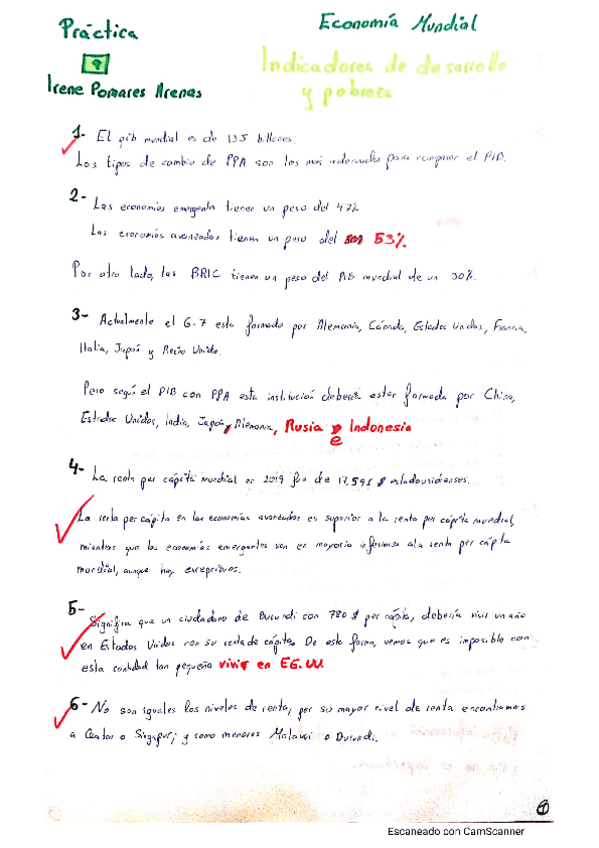 Práctica
Economía Mundial
Indicadores de desarrollo
y pobreza
Irene Pomares Arenas
1- El pib mundial es de 135 billones.
Los tipos de cambio de PPA son los más adecuados para comparar el PIB.
2- Las economías emergentes tienen un peso del 47%
Las economías avanzadas tienen un peso del 53%
Por otro lado, las BRIC tienen un peso del PIB mundial de un 30%.
3- Actualmente el G-7 esta formado por Alemania, Cánada, Estados Unidos, Francia,
Italia, Japón y Reino Unido.
Pero según el PIB con PPA esta institución debería estar formada por China,
Estados Unidos, India, Japón, Alemania, Rusia e Indonesia
4- La renta per cápita mundial en 2019 fue de 17.591 $ estadounidenses.
La renta per cápita en las economías avanzadas es superior a la renta per cápita mundial,
mientras que las economías emergentes son en mayoria inferiores a la renta per cápita
mundial, aunque hay excepciones.
5- Significa que un ciudadano de Burundi con 780 $ per cápita, debería vivir un año
en Estados Unidos con su renta de cápita. De esta forma, vemos que es imposible con
esta cantidad tan pequeña vivir en EE.UU
6- No son iguales los niveles de renta, por su mayor nivel de renta encontramos
a Qatar o Singapur; y como menores Malawi o Burundi.
Escaneado con CamScanner